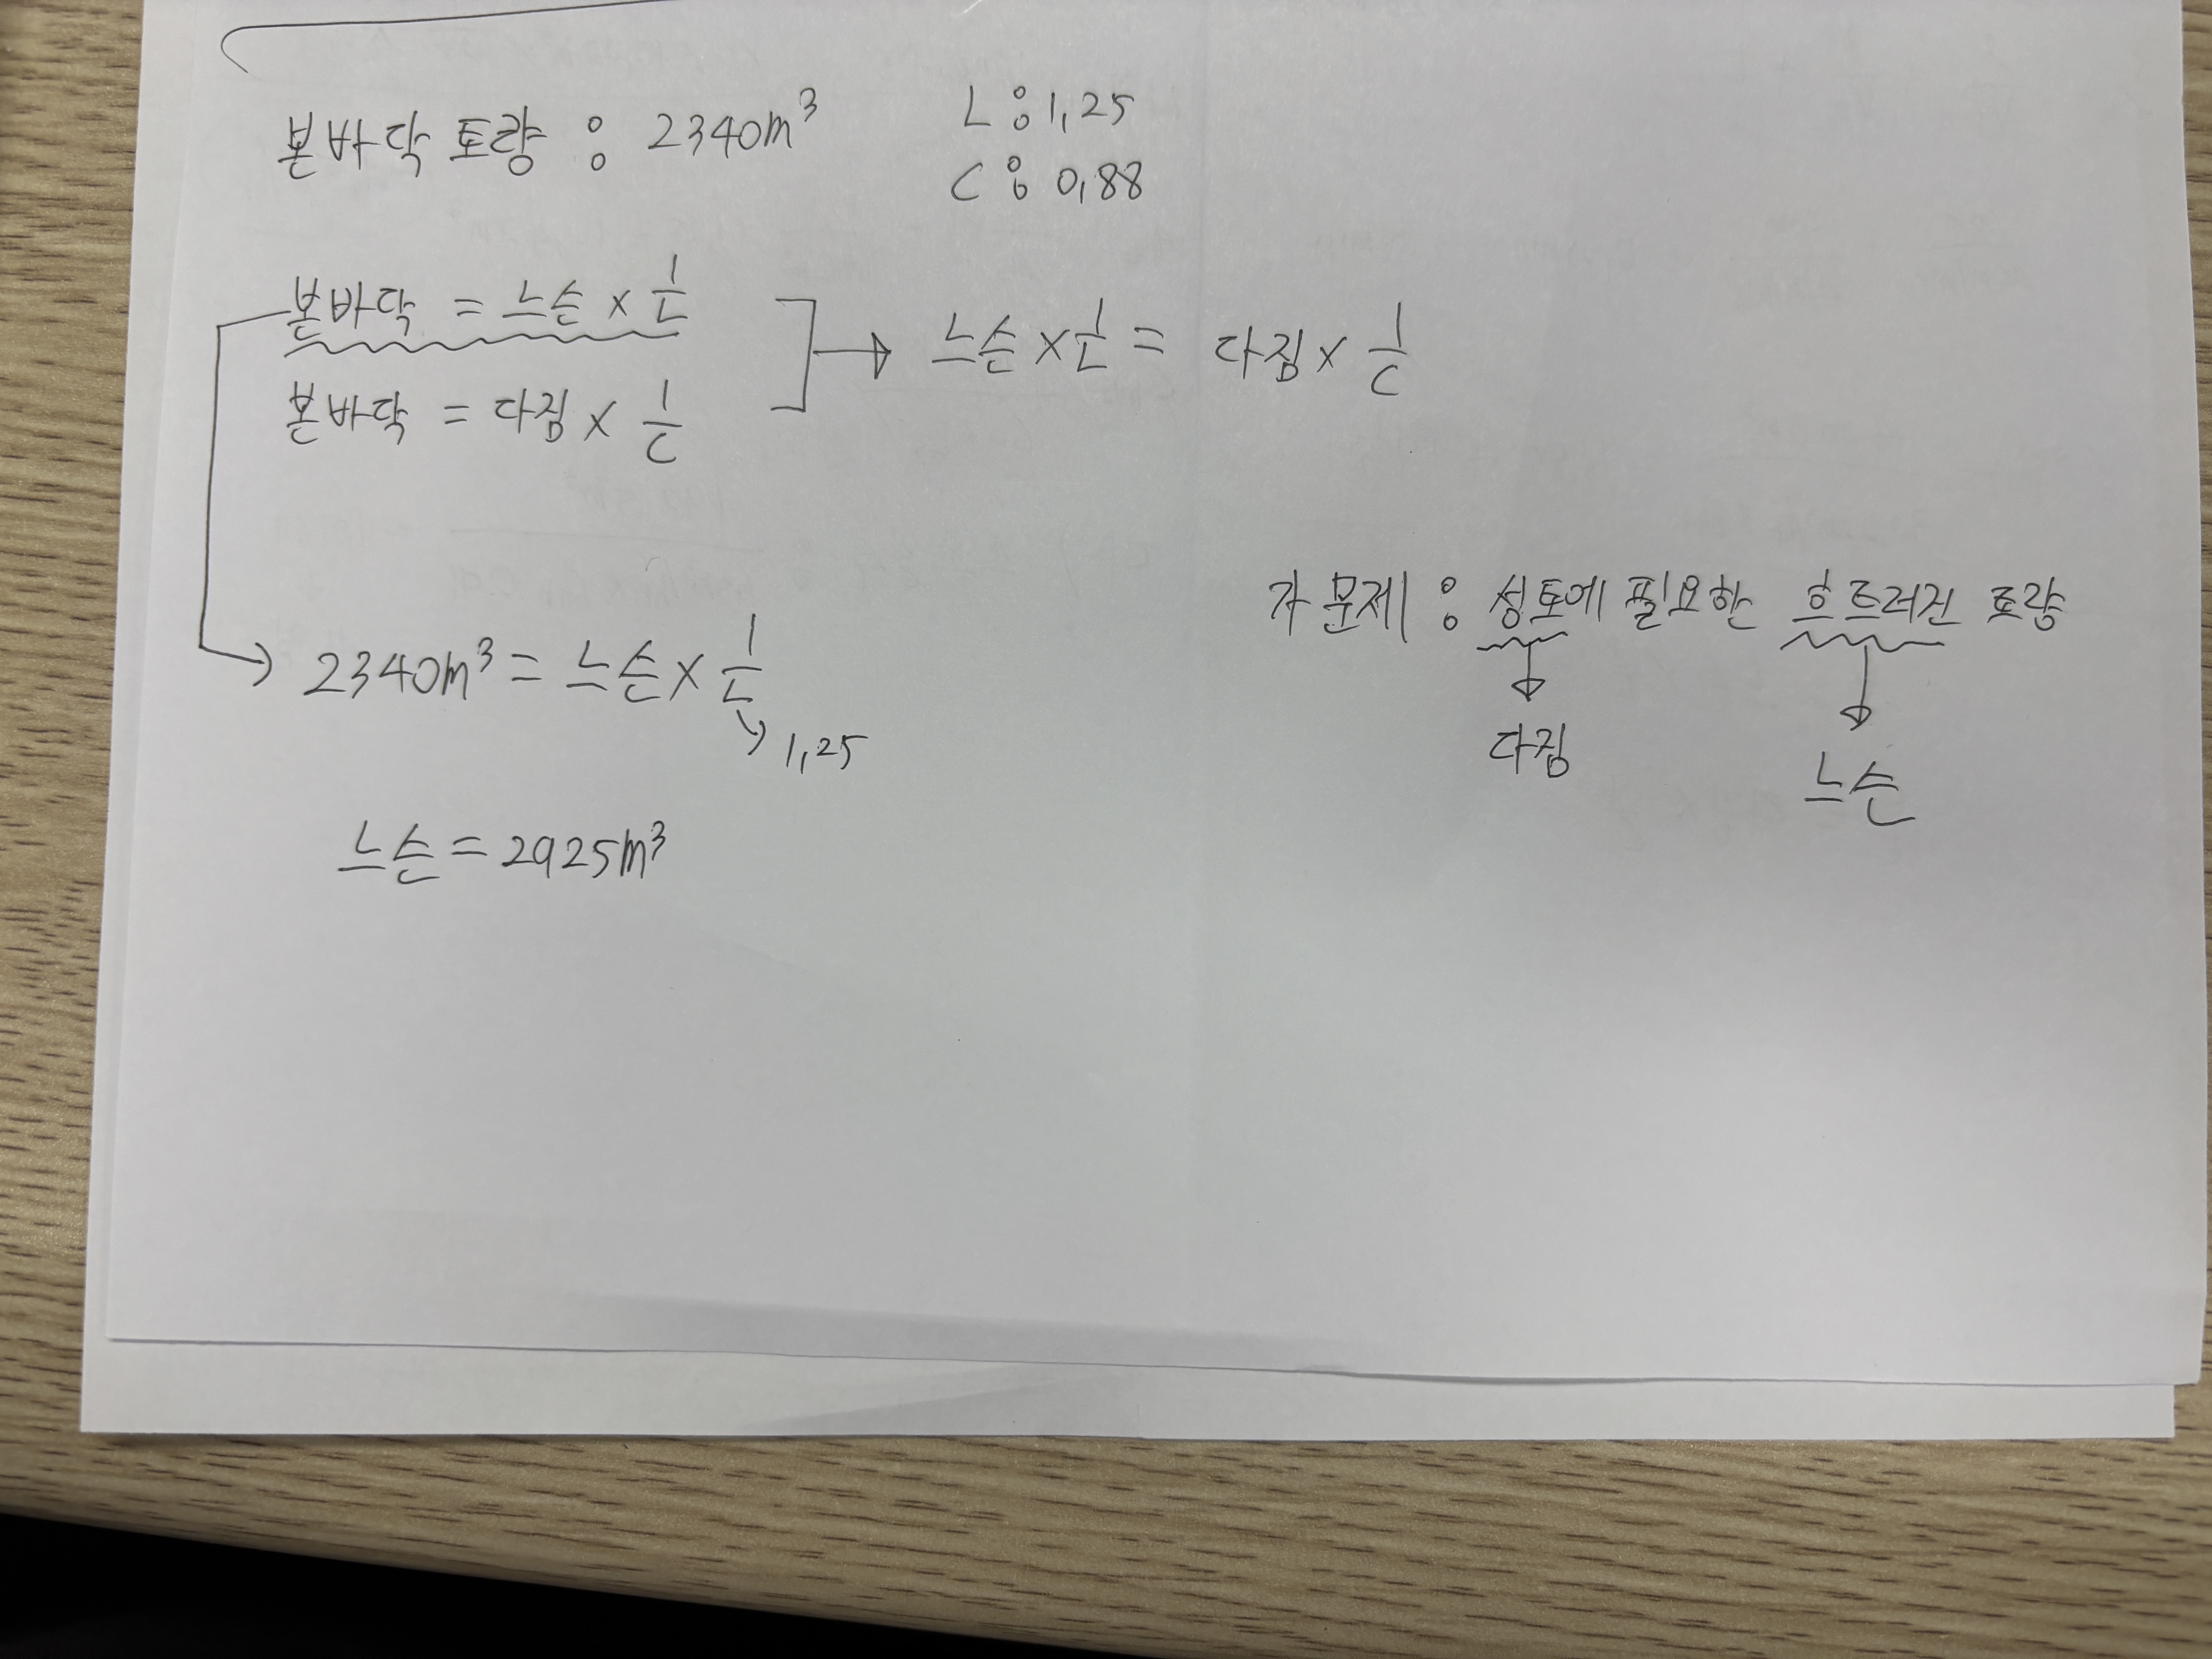 본바닥 토량 : 2340m³
L : 1,25
C : 0,88
본바닥 = 느슨 × 1/L
본바닥 = 다짐 × 1/C
→ 느슨 × 1/L = 다짐 × 1/C
→ 2340m³ = 느슨 × 1/L
→ 1,25
느슨 = 2925m³
가 문제 : 성토에 필요한 흐트러진 토량
↓ 다짐
↓ 느슨